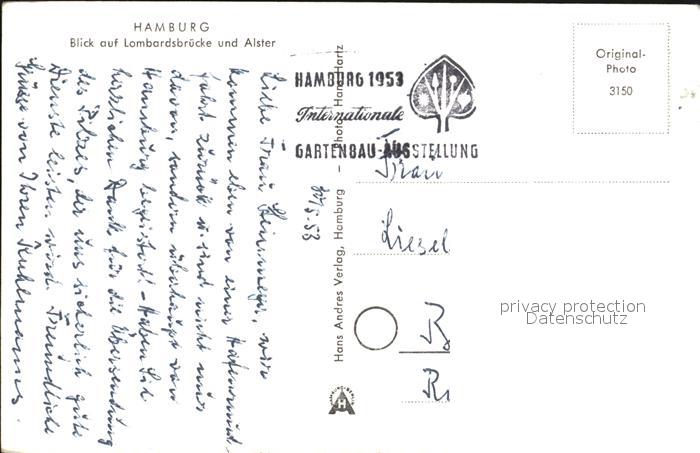 HAMBURG
Blick auf Lombardsbrücke und Alster
HAMBURG 1953
Internationale
GARTENBAU-AUSSTELLUNG
Original-
Photo
3150
Hans Andres Verlag, Hamburg — Photo: Hans Hartz
Liebe Frau, wir
kommen eben von einer Hafenrund-
fahrt zurück u. sind nicht nur
davon, sondern überhaupt von
Hamburg begeistert! - Haben Sie
herzlichen Dank für die Übersendung
des Pilzes, der uns sicherlich gute
Dienste leisten wird. Freundliche
Grüße von Ihren Kuhlmanns.
Frau
Liesel
B
privacy protection
Datenschutz